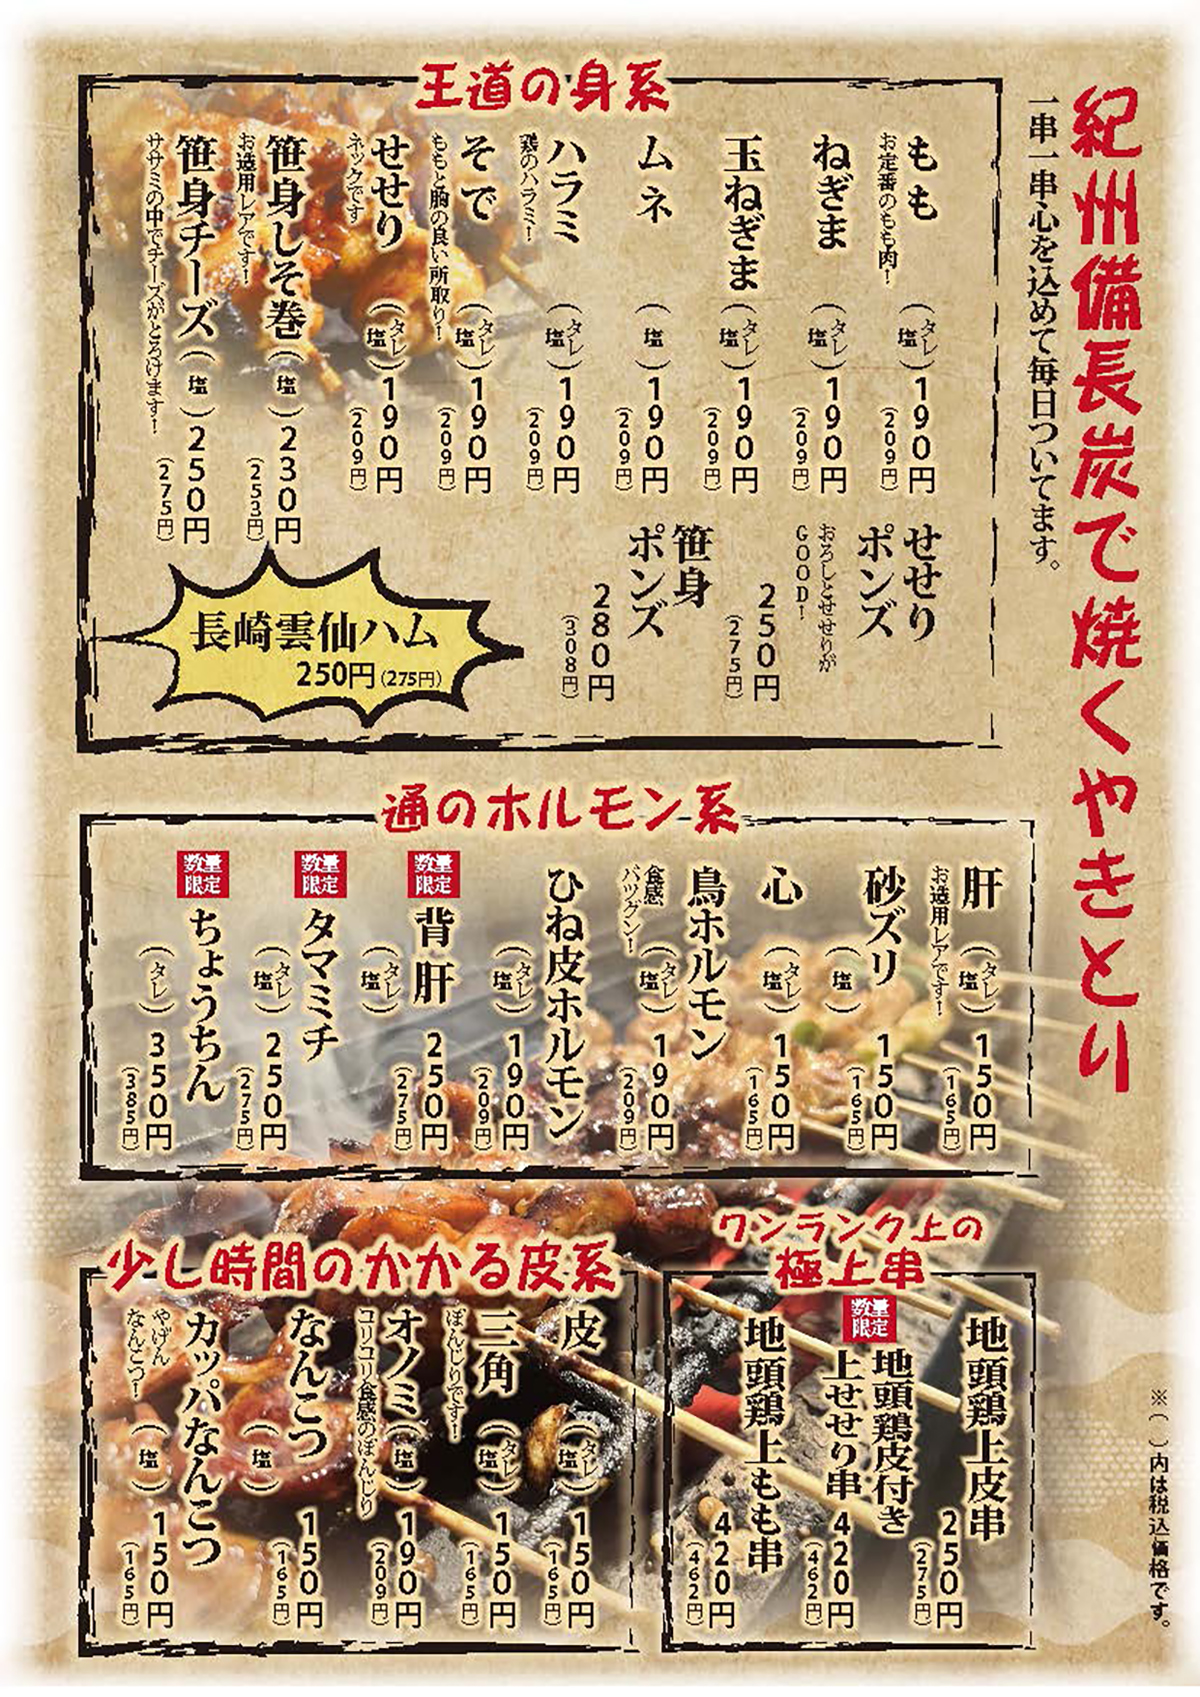 紀州備長炭で焼くやきとり
一串一串心を込めて毎日ついてます。
王道の身系
もも
お定番のもも肉!
(タレ 塩)190円
(209円)
ねぎま
(タレ 塩)190円
(209円)
玉ねぎま
(タレ 塩)190円
(209円)
ムネ
(塩)190円
(209円)
ハラミ
鶏のハラミ!
(タレ 塩)190円
(209円)
そで
ももと胸の良い所取り!
(タレ 塩)190円
(209円)
せせり
ネックです
(タレ 塩)190円
(209円)
笹身しそ巻(塩)230円
お造用レアです!
(253円)
笹身チーズ(塩)250円
ササミの中でチーズがとろけます!
(275円)
せせり
ポンズ
おろしとせせりが
GOOD!
250円
(275円)
笹身
ポンズ
280円
(308円)
長崎雲仙ハム
250円(275円)
通のホルモン系
肝
お造用レアです!
(タレ 塩)150円
(165円)
砂ズリ
(塩)150円
(165円)
心
(タレ 塩)150円
(165円)
鳥ホルモン
食感
バツグン!
(タレ 塩)190円
(209円)
ひね皮ホルモン
(タレ 塩)190円
(209円)
数量
限定
背肝
(タレ 塩)250円
(275円)
数量
限定
タマミチ
(タレ 塩)250円
(275円)
数量
限定
ちょうちん
(タレ)350円
(385円)
ワンランク上の
極上串
地頭鶏上皮串
250円
(275円)
数量
限定
地頭鶏皮付き
上せせり串
420円
(462円)
地頭鶏上もも串
420円
(462円)
少し時間のかかる皮系
皮
(タレ 塩)150円
(165円)
三角
ぼんじりです!
(タレ 塩)150円
(165円)
オノミ
コリコリ食感のぼんじり
(塩)190円
(209円)
なんこつ
(塩)150円
(165円)
カッパなんこつ
やげん
なんこつ!
(塩)150円
(165円)
※( )内は税込価格です。